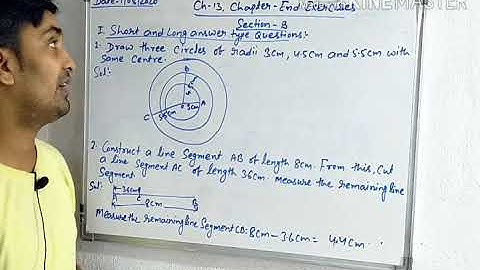 Ch-13, Chapter-End Exercises
Section-B
I. Short and Long answer type Questions:-
1. Draw three Circles of radii 3cm, 4.5cm and 5.5cm with
Same Centre.
Sol:
B
C
5.5cm
3cm
A
2. Construct a line Segment AB of length 8cm. From this, cut
a line Segment AC of length 3.6cm. Measure the remaining line
Segment.
Sol:
3.6cm
A
C
B
8cm
Measure the remaining line Segment CB: 8cm - 3.6cm = 4.4cm